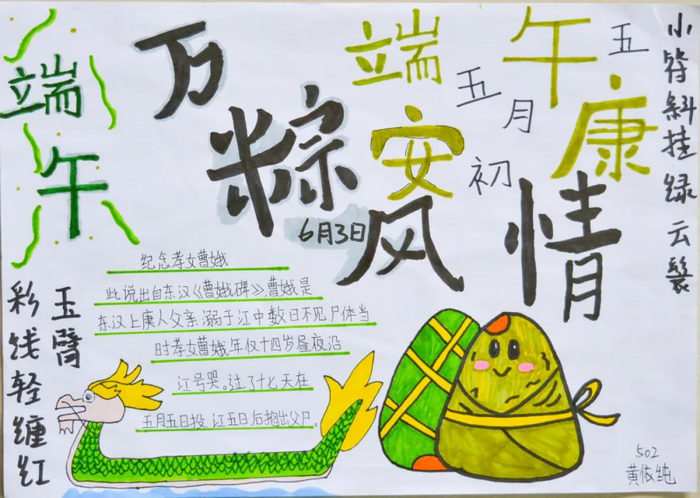 端午
万粽风情
端午安康
五月初五
6月3日
小符斜挂绿云鬟
玉臂
彩线轻缠红
纪念孝女曹娥
此说出自东汉《曹娥碑》曹娥是
东汉上虞人父亲溺于江中数日不见尸体当
时孝女曹娥年仅十四岁昼夜沿
江号哭。过了十七天在
五月五日投江五日后抱出父尸。
502
黄依纯